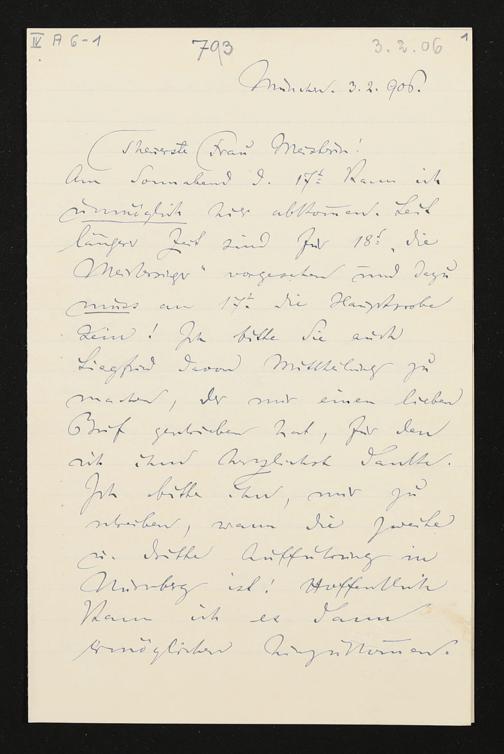 IV A 6-1
793
3.2.06
1
München. 3.2.906.
Theuerste Frau Meisterin!
Am Sonnabend d. 17t. kann ich
unmöglich hier abkommen. Seit
länger Zeit sind für 18t. „Die
Meistersinger" vorgesehen und dazu
muss am 17t. die Hauptprobe
sein! Ich bitte Sie auch
Siegfried davon Mittheilung zu
machen, der mir einen lieben
Brief geschrieben hat, für den
ich ihm herzlichst danke.
Ich bitte ihn, mir zu
schreiben, wann die zweite
u. dritte Aufführung in
Nürnberg ist! Hoffentlich
kann ich es dann
ermöglichen hinzukommen.